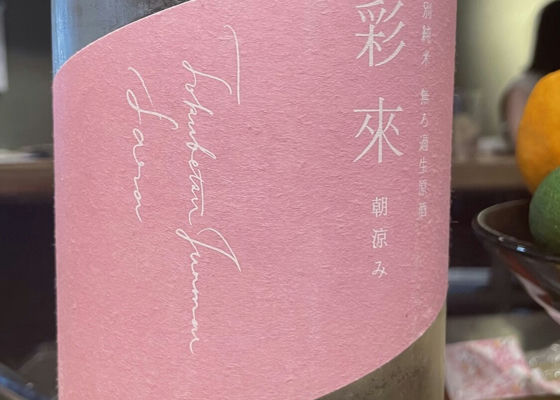 別純米 無ろ過生原酒
彩來
朝涼み
Tokubetsu Junmai
Sara